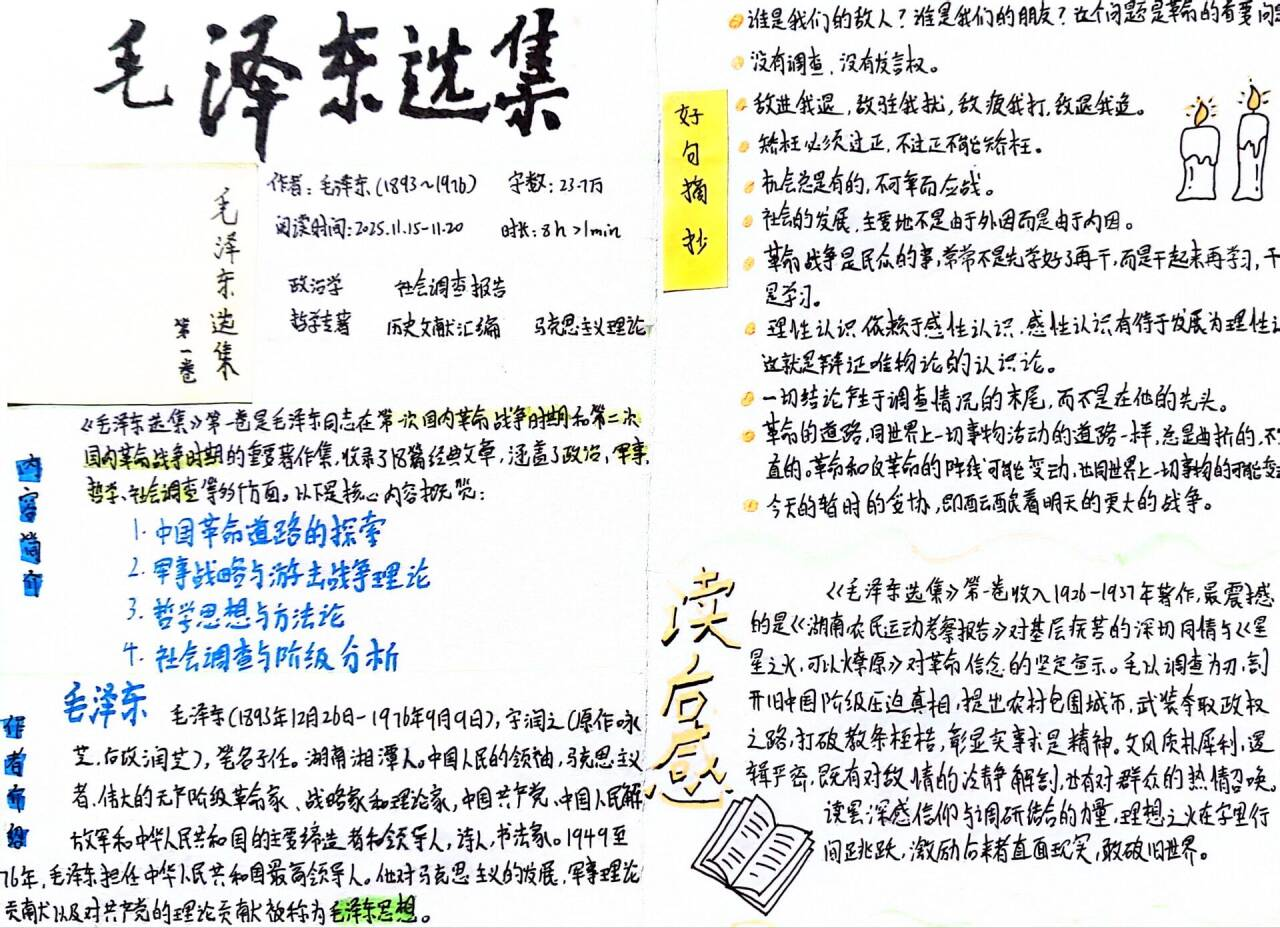 毛泽东选集
毛泽东选集
第一卷
作者:毛泽东(1893~1976) 字数:23.7万
阅读时间:2025.11.15-11.20 时长:8h 21min
政治学 社会调查报告
哲学专著 历史文献汇编 马克思主义理论
内容简介
《毛泽东选集》第一卷是毛泽东同志在第一次国内革命战争时期和第二次
国内革命战争时期的重要著作集,收录了18篇经典文章,涵盖了政治、军事、
哲学、社会调查等多个方面。以下是核心内容概览:
1. 中国革命道路的探索
2. 军事战略与游击战争理论
3. 哲学思想与方法论
4. 社会调查与阶级分析
作者介绍
毛泽东 毛泽东(1893年12月26日-1976年9月9日),字润之(原作咏
芝,后改润芝),笔名子任。湖南湘潭人。中国人民的领袖,马克思主义
者,伟大的无产阶级革命家、战略家和理论家,中国共产党、中国人民解
放军和中华人民共和国的主要缔造者和领导人,诗人,书法家。1949至
76年,毛泽东担任中华人民共和国最高领导人。他对马克思主义的发展,军事理论
贡献以及对共产党的理论贡献被称为毛泽东思想。
好句摘抄
谁是我们的敌人?谁是我们的朋友?这个问题是革命的首要问
没有调查,没有发言权。
敌进我退,敌驻我扰,敌疲我打,敌退我追。
矫枉必须过正,不过正不能矫枉。
机会总是有的,不可率而应战。
社会的发展,主要地不是由于外因而是由于内因。
革命战争是民众的事,常常不是先学好了再干,而是干起来再学习,干
是学习。
理性认识依赖于感性认识,感性认识有待于发展为理性认
这就是辩证唯物论的认识论。
一切结论产生于调查情况的末尾,而不是在他的先头。
革命的道路,同世界上一切事物活动的道路一样,总是曲折的,不
直的。革命和反革命的阵线可能变动,也同世界上一切事物的可能变
今天的暂时的妥协,即酝酿着明天的更大的战争。
读后感
《毛泽东选集》第一卷收入1926-1937年著作,最震撼
的是《湖南农民运动考察报告》对基层疾苦的深切同情与《星
星之火,可以燎原》对革命信念的坚定宣示。毛以调查为刃,割
开旧中国阶级压迫真相,提出农村包围城市,武装夺取政权
之路,打破教条桎梏,彰显实事求是精神。文风质朴犀利,逻
辑严密,既有对敌情的冷静解剖,也有对群众的热情召唤。
读罢深感信仰与调研结合的力量,理想之火在字里行
间跳跃,激励后来者直面现实,敢破旧世界。